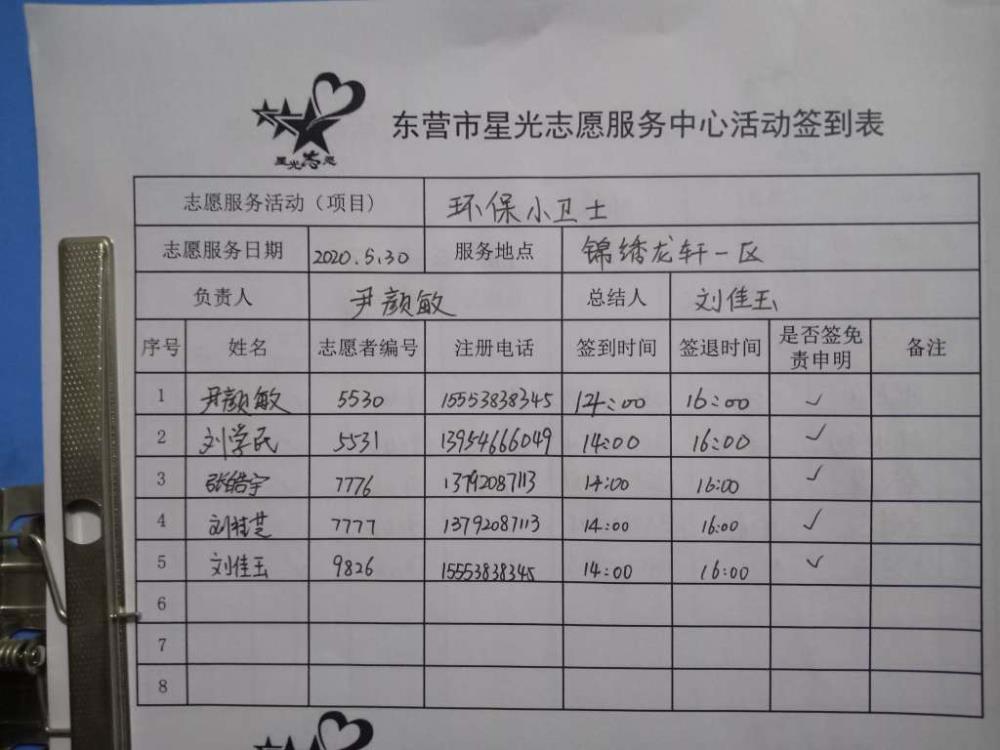 星光志愿
东营市星光志愿服务中心活动签到表
志愿服务活动（项目） 环保小卫士
志愿服务日期 2020.5.30 服务地点 锦绣龙轩一区
负责人 尹颜敏 总结人 刘佳玉
序号 姓名 志愿者编号 注册电话 签到时间 签退时间 是否签免责申明 备注
1 尹颜敏 5530 15553838345 14:00 16:00 ✓
2 刘学民 5531 13954666049 14:00 16:00 ✓
3 张皓宇 7776 13792087113 14:00 16:00 ✓
4 刘桂芝 7777 13792087113 14:00 16:00 ✓
5 刘佳玉 9826 15553838345 14:00 16:00 ✓
6
7
8